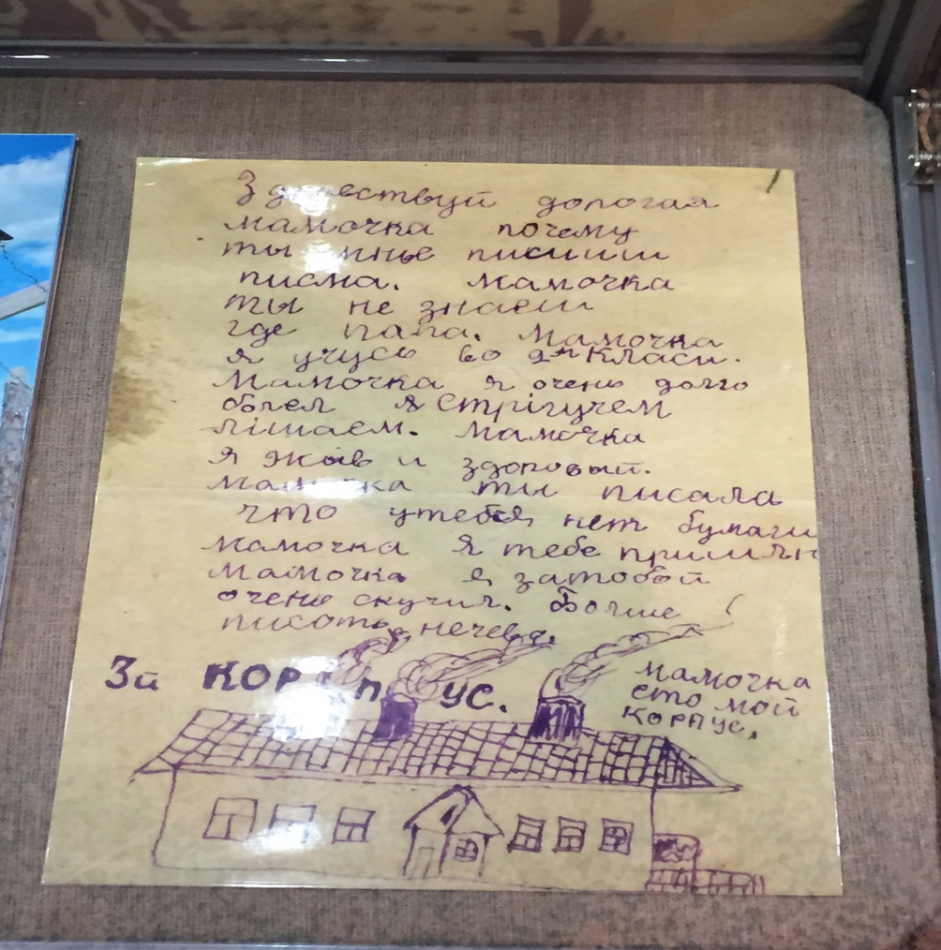 Здраествуй дорогая
мамочка почему
ты мнье писиш
писма. мамочка
ты не знаеш
где папа. Мамочка
я учусь во 2м класи.
Мамочка я очень долго
болел я Стрігучем
лішаем. Мамочка
я жыв и здоровый.
Мамочка ты писала
что утебя нет бумаги
мамочка я тебе пришлю
мамочка я затобой
очень скучил. Болше
писать нечево.
3й КОРПУС.
мамочка
ето мой
корпус.